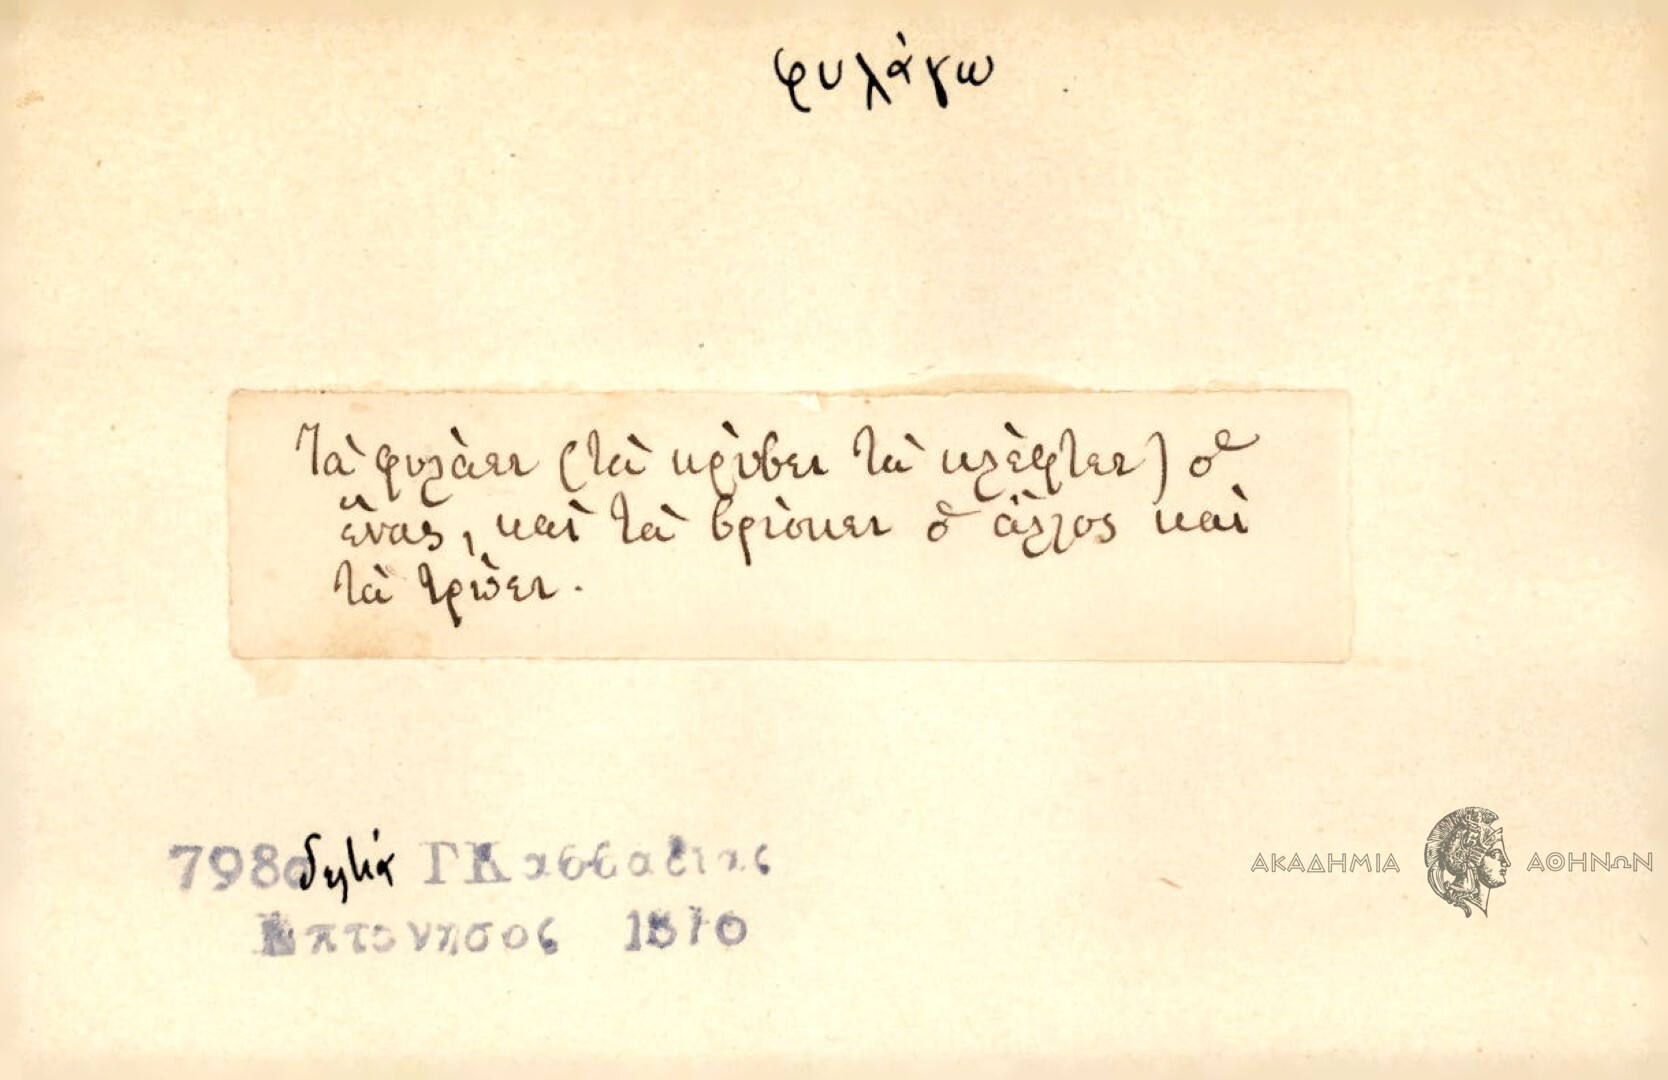 φυλάγω
Τὰ φυλάει (τὰ κρύβει τὰ κλέφτει) ὁ
ἕνας, καὶ τὰ βρίσκει ὁ ἄλλος καὶ
τὰ τρώει.
798 δελτία Γ
Επτάνησος 1870
ΑΚΑΔΗΜΙΑ ΑΘΗΝΩΝ